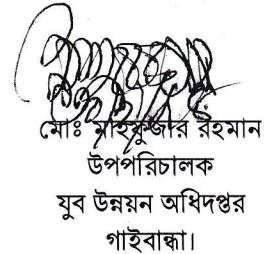 মোঃ মাহফুজার রহমান
উপপরিচালক
যুব উন্নয়ন অধিদপ্তর
গাইবান্ধা।